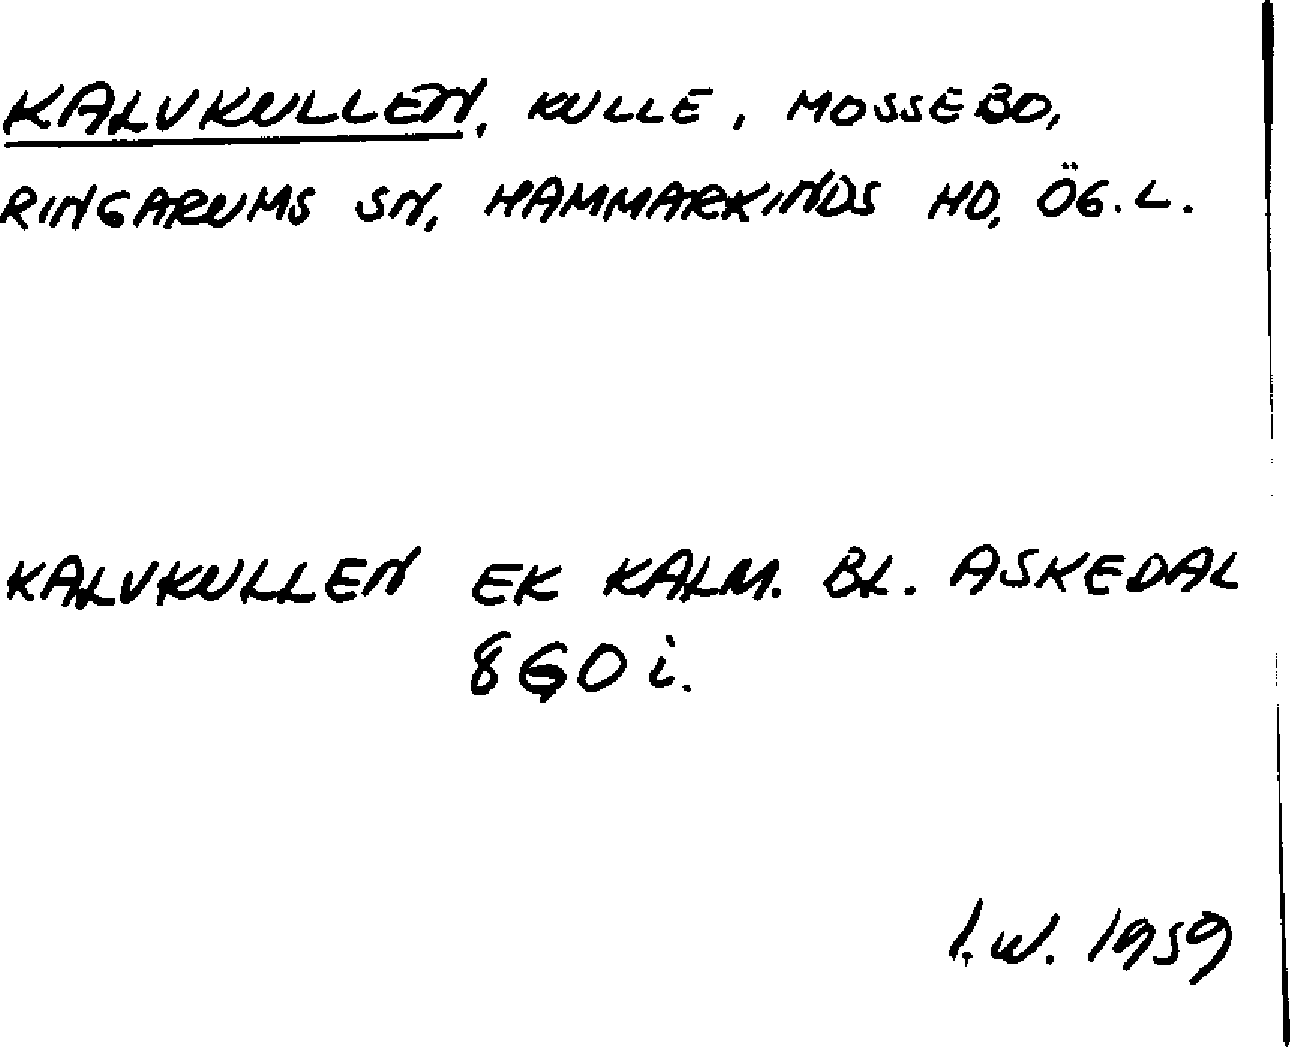 KALVKULLEN, KULLE, MOSSEBO,
RINGARUMS SN, HAMMARKINDS HD, ÖG.L.
KALVKULLEN EK KALM. BL. ASKEDAL
8G0 i.
I.W. 1959